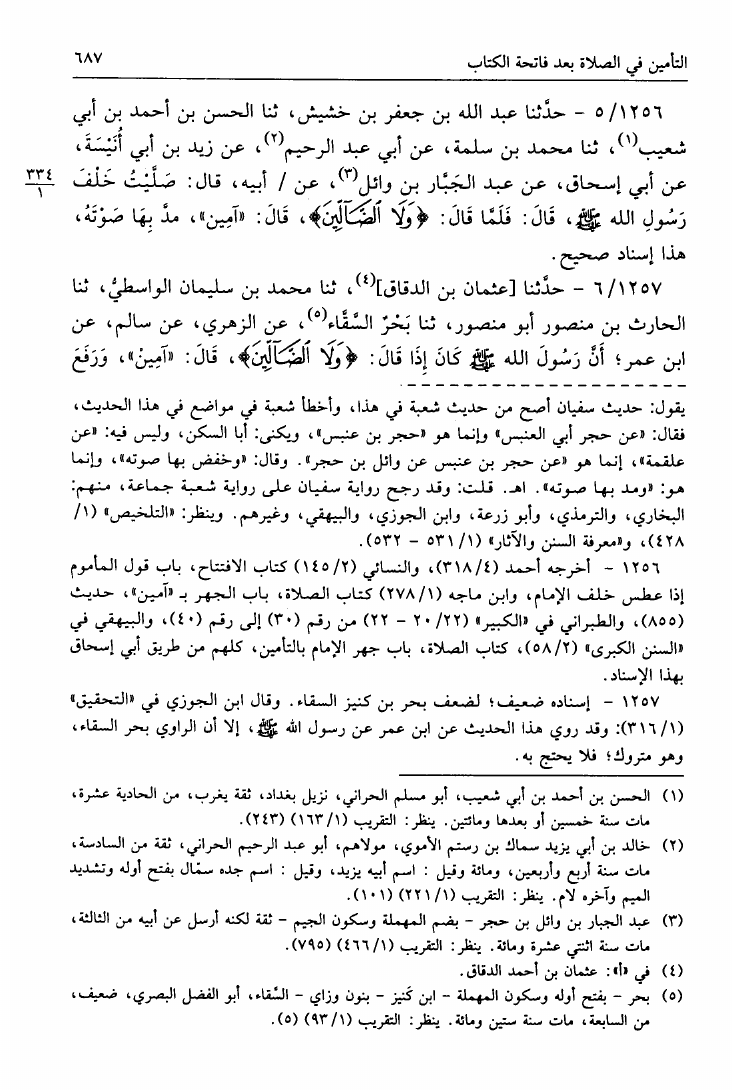 التأمين في الصلاة بعد فاتحة الكتاب ٦٨٧
٥/١٢٥٦ - حدَّثنا عبد الله بن جعفر بن خشيش، ثنا الحسن بن أحمد بن أبي
شعيب(١)، ثنا محمد بن سلمة، عن أبي عبد الرحيم(٢)، عن زيد بن أبي أُنَيْسَةَ،
عن أبي إسحاق، عن عبد الجَبَّار بن وائل(٣)، عن / أبيه، قال: صَلَّيْتُ خَلْفَ ٣٣٤/١
رَسُولِ الله ﷺ، قَالَ: فَلَمَّا قَالَ: ﴿وَلَا ٱلضَّآلِّينَ﴾، قَالَ: «آمِين»، مدَّ بِهَا صَوْتَهُ،
هذا إسناد صحيح.
٦/١٢٥٧ - حدَّثنا [عثمان بن الدقاق](٤)، ثنا محمد بن سليمان الواسطيُّ، ثنا
الحارث بن منصور أبو منصور، ثنا بَحْرٌ السَّقَّاء(٥)، عن الزهري، عن سالم، عن
ابن عمر؛ أَنَّ رَسُولَ الله ﷺ كَانَ إِذَا قَالَ: ﴿وَلَا ٱلضَّآلِّينَ﴾، قَالَ: «آمِينْ»، وَرَفَعَ
يقول: حديث سفيان أصح من حديث شعبة في هذا، وأخطأ شعبة في مواضع في هذا الحديث،
فقال: «عن حجر أبي العنبس» وإنما هو «حجر بن عنبس»، ويكنى: أبا السكن، وليس فيه: «عن
علقمة»، إنما هو «عن حجر بن عنبس عن وائل بن حجر». وقال: «وخفض بها صوته»، وإنما
هو: «ومد بها صوته». اهـ. قلت: وقد رجح رواية سفيان على رواية شعبة جماعة، منهم:
البخاري، والترمذي، وأبو زرعة، وابن الجوزي، والبيهقي، وغيرهم. وينظر: «التلخيص» (١/
٤٢٨)، و«معرفة السنن والآثار» (١/ ٥٣١ - ٥٣٢).
١٢٥٦ - أخرجه أحمد (٣١٨/٤)، والنسائي (١٤٥/٢) كتاب الافتتاح، باب قول المأموم
إذا عطس خلف الإمام، وابن ماجه (٢٧٨/١) كتاب الصلاة، باب الجهر بـ «آمين»، حديث
(٨٥٥)، والطبراني في «الكبير» (٢٠/٢٢ - ٢٢) من رقم (٣٠) إلى رقم (٤٠)، والبيهقي في
«السنن الكبرى» (٥٨/٢)، كتاب الصلاة، باب جهر الإمام بالتأمين، كلهم من طريق أبي إسحاق
بهذا الإسناد.
١٢٥٧ - إسناده ضعيف؛ لضعف بحر بن كنيز السقاء. وقال ابن الجوزي في «التحقيق»
(٣١٦/١): وقد روي هذا الحديث عن ابن عمر عن رسول الله ﷺ، إلا أن الراوي بحر السقاء،
وهو متروك؛ فلا يحتج به.
(١) الحسن بن أحمد بن أبي شعيب، أبو مسلم الحراني، نزيل بغداد، ثقة يغرب، من الحادية عشرة،
مات سنة خمسين أو بعدها ومائتين. ينظر: التقريب (١٦٣/١) (٢٤٣).
(٢) خالد بن أبي يزيد سماك بن رستم الأموي، مولاهم، أبو عبد الرحيم الحراني، ثقة من السادسة،
مات سنة أربع وأربعين، ومائة وقيل : اسم أبيه يزيد، وقيل : اسم جده سمّال بفتح أوله وتشديد
الميم وآخره لام. ينظر: التقريب (٢٢١/١) (١٠١).
(٣) عبد الجبار بن وائل بن حجر - بضم المهملة وسكون الجيم - ثقة لكنه أرسل عن أبيه من الثالثة،
مات سنة اثنتي عشرة ومائة. ينظر: التقريب (٤٦٦/١) (٧٩٥).
(٤) في «أ»: عثمان بن أحمد الدقاق.
(٥) بحر - بفتح أوله وسكون المهملة - ابن كَنيز - بنون وزاي - السَّقاء، أبو الفضل البصري، ضعيف،
من السابعة، مات سنة ستين ومائة. ينظر: التقريب (٩٣/١) (٥).